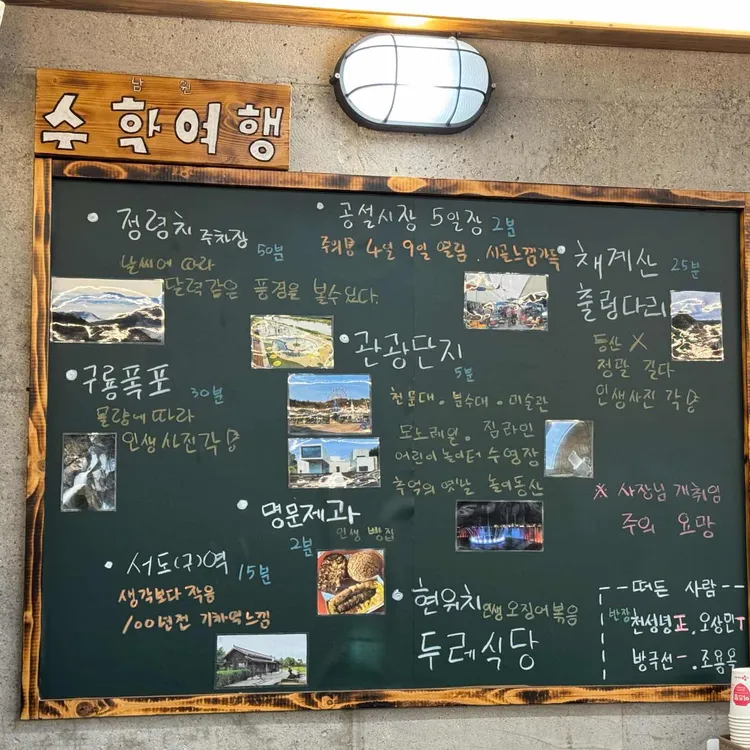 남원
수학여행
정령치 주차장 50분
날씨에 따라
달력같은 풍경을 볼수있다.
공설시장 5일장 2분
주의뜽 4일 9일 열림. 시골느낌가득
채계산 25분
출렁다리
등산 X
정말 길다
인생사진 각
관광단지
5분
천문대. 분수대. 미술관
모노레일. 짚라인
어린이놀이터 수영장
추억의 옛날 놀이동산
구룡폭포 30분
물량에 따라
인생사진각
명문제과
인생 빵집
2분
서도(구)역 15분
생각보다 작음
100년전 기차역느낌
현위치 인생 오징어볶음
두레식당
※ 사장님 개취임
주의 요망
떠든 사람
반장 천성녕 正. 오상민 T
방극선 一. 조용옥